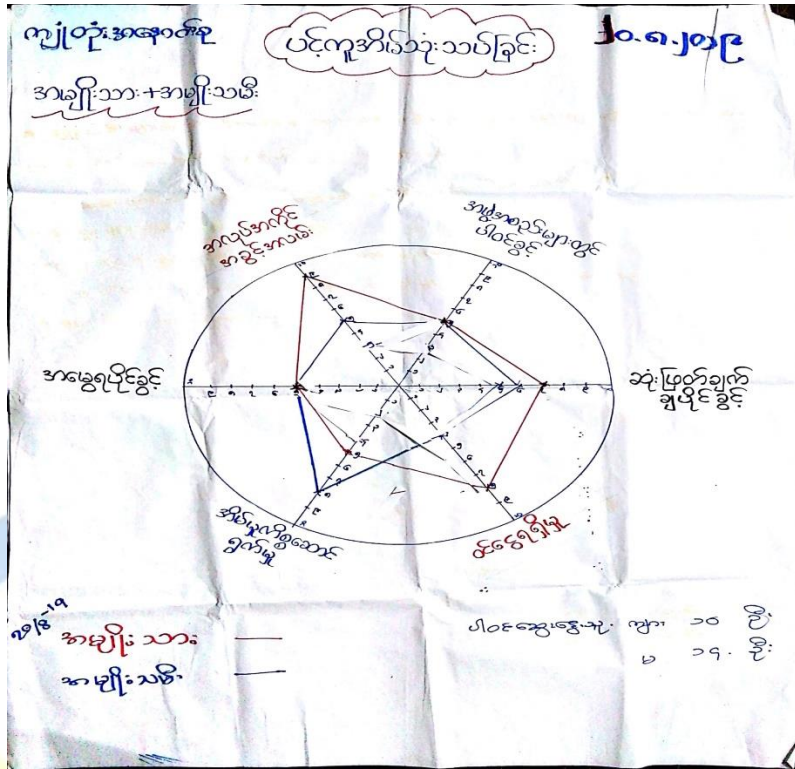 ကျုံတုံးအနောက်စု
ပင့်ကူအိမ်သုံးသပ်ခြင်း
၂၀.၈.၂၀၁၉
အမျိုးသား+အမျိုးသမီး
အလုပ်အကိုင်
အခွင့်အလမ်း
အဖွဲ့အစည်းများတွင်
ပါဝင်ခွင့်
အမွေရပိုင်ခွင့်
ဆုံးဖြတ်ချက်
ချပိုင်ခွင့်
အိမ်မှုကိစ္စဆောင်
ရွက်မှု
ဝင်ငွေရရှိမှု
အမျိုးသား
အမျိုးသမီး
ပါဝင်ဆွေးနွေးသူ ကျား ၁၀ ဦး
မ ၁၇. ဦး